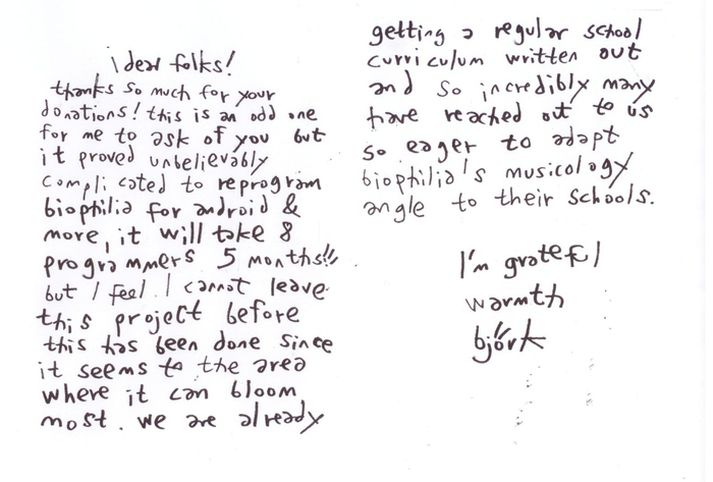 dear folks!
thanks so much for your
donations! this is an odd one
for me to ask of you but
it proved unbelievably
complicated to reprogram
biophilia for android &
more, it will take 8
programmers 5 months!!
but I feel I cannot leave
this project before
this has been done since
it seems to the area
where it can bloom
most. we are already
getting a regular school
curriculum written out
and so incredibly many
have reached out to us
so eager to adapt
biophilia's musicology
angle to their schools.
I'm grateful
warmth
björk